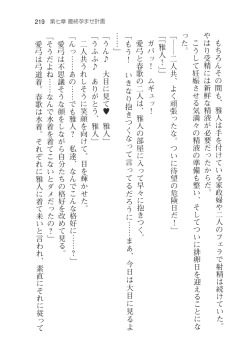 219　第七章 最終孕ませ計画
もちろんその間も、雅人は手を付けている家政婦や二人のフェラで射精は続けていた。
やはり受精には新鮮な精液が必要だったからだ。
こうして、妊娠させる気満々の精液の準備も整い、そしてついに排卵日を迎えることになった。
「――二人共、よく頑張ったな、ついに待望の危険日だ！」
「「雅人！」」
ガバッ！　ムギュッ！
愛弓と春歌の二人は、雅人の部屋に入って早々に抱きつく。
「もう！　いきなり抱きつくなって言ってるだろうに……まあ、今日は大目に見るよ」
「うん♪　大目に見て♥　雅人」
「うふふ♪　ありがとう、雅人」
二人共うれしそうに笑顔を向けて、目を輝かせた。
「……ん？　でも……なんで雅人？　私達、なんでこんな格好に……？」
愛弓は不思議そうな顔をしながら自分たちの格好を改めて見る。
「そうだよね……なんで水着を着てこないとダメだったの？」
愛弓は 着、春歌は水着。それぞれに雅人に着て来いと言われ、素直にそれに従って